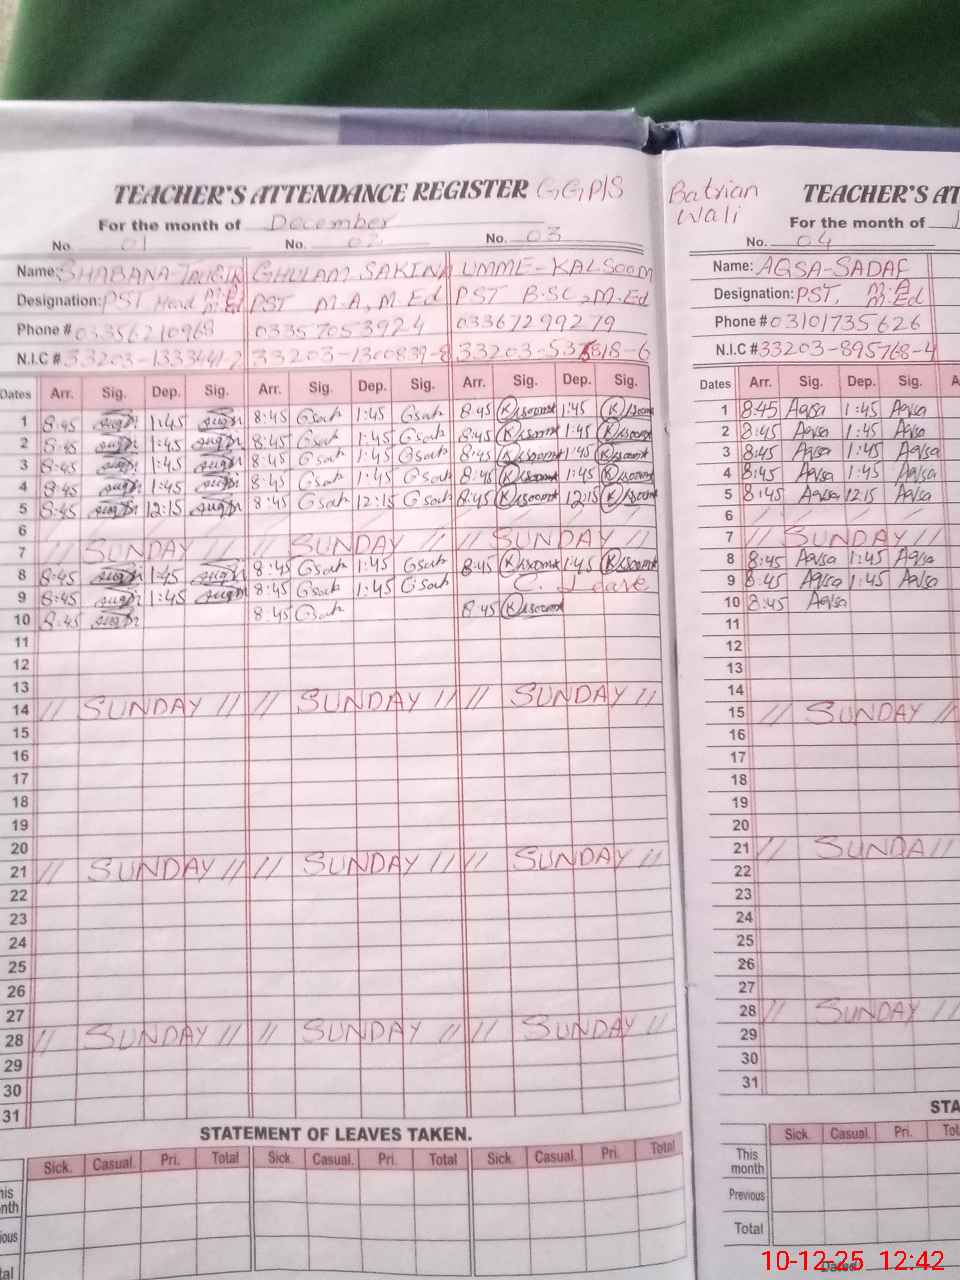 TEACHER'S ATTENDANCE REGISTER G.G.P/S
For the month of December
No. 01 No. 02 No. 03
Name: SHABANA- GHULAM SAKINA UMME-KALSOOM
Designation: PST Head M.A M.Ed PST M.A, M.Ed PST B.SC, M.Ed
Phone # 03356210968 03357053924 03367299279
N.I.C # 33203-1333441-2 33203-1300839-8 33203-5376818-6
Dates Arr. Sig. Dep. Sig. Arr. Sig. Dep. Sig. Arr. Sig. Dep. Sig.
1 8:45 1:45 8:45 Gsak 1:45 Gsak 8:45 Klsoom 1:45 Klsoom
2 8:45 1:45 8:45 Gsak 1:45 Gsak 8:45 Klsoom 1:45 Klsoom
3 8:45 1:45 8:45 Gsak 1:45 Gsak 8:45 Klsoom 1:45 Klsoom
4 8:45 1:45 8:45 Gsak 1:45 Gsak 8:45 Klsoom 1:45 Klsoom
5 8:45 12:15 8:45 Gsak 12:15 Gsak 8:45 Klsoom 12:15 Klsoom
6
7 // SUNDAY // // SUNDAY // // SUNDAY //
8 8:45 1:45 8:45 Gsak 1:45 Gsak 8:45 Klsoom 1:45 Klsoom
9 8:45 1:45 8:45 Gsak 1:45 Gsak C. Leave
10 8:45 8:45 Gsak 8:45 Klsoom
11
12
13
14 // SUNDAY // // SUNDAY // // SUNDAY //
15
16
17
18
19
20
21 // SUNDAY // // SUNDAY // // SUNDAY //
22
23
24
25
26
27
28 // SUNDAY // // SUNDAY // // SUNDAY //
29
30
31
STATEMENT OF LEAVES TAKEN.
Sick. Casual. Pri. Total Sick. Casual. Pri. Total Sick. Casual. Pri. Total
his
nth
ious
tal
Batrian
Wali
TEACHER'S AT
For the month of
No. 04
Name: AQSA-SADAF
Designation: PST, M.A M.Ed
Phone # 03101735626
N.I.C # 33203-895768-4
Dates Arr. Sig. Dep. Sig. A
1 8:45 Aqsa 1:45 Aqsa
2 8:45 Aqsa 1:45 Aqsa
3 8:45 Aqsa 1:45 Aqsa
4 8:45 Aqsa 1:45 Aqsa
5 8:45 Aqsa 12:15 Aqsa
6
7 // SUNDAY //
8 8:45 Aqsa 1:45 Aqsa
9 8:45 Aqsa 1:45 Aqsa
10 8:45 Aqsa
11
12
13
14
15 // SUNDAY //
16
17
18
19
20
21 // SUNDA //
22
23
24
25
26
27
28 // SUNDAY //
29
30
31
STA
Sick. Casual. Pri. Tot
This
month
Previous
Total
Dated
10-12-25 12:42